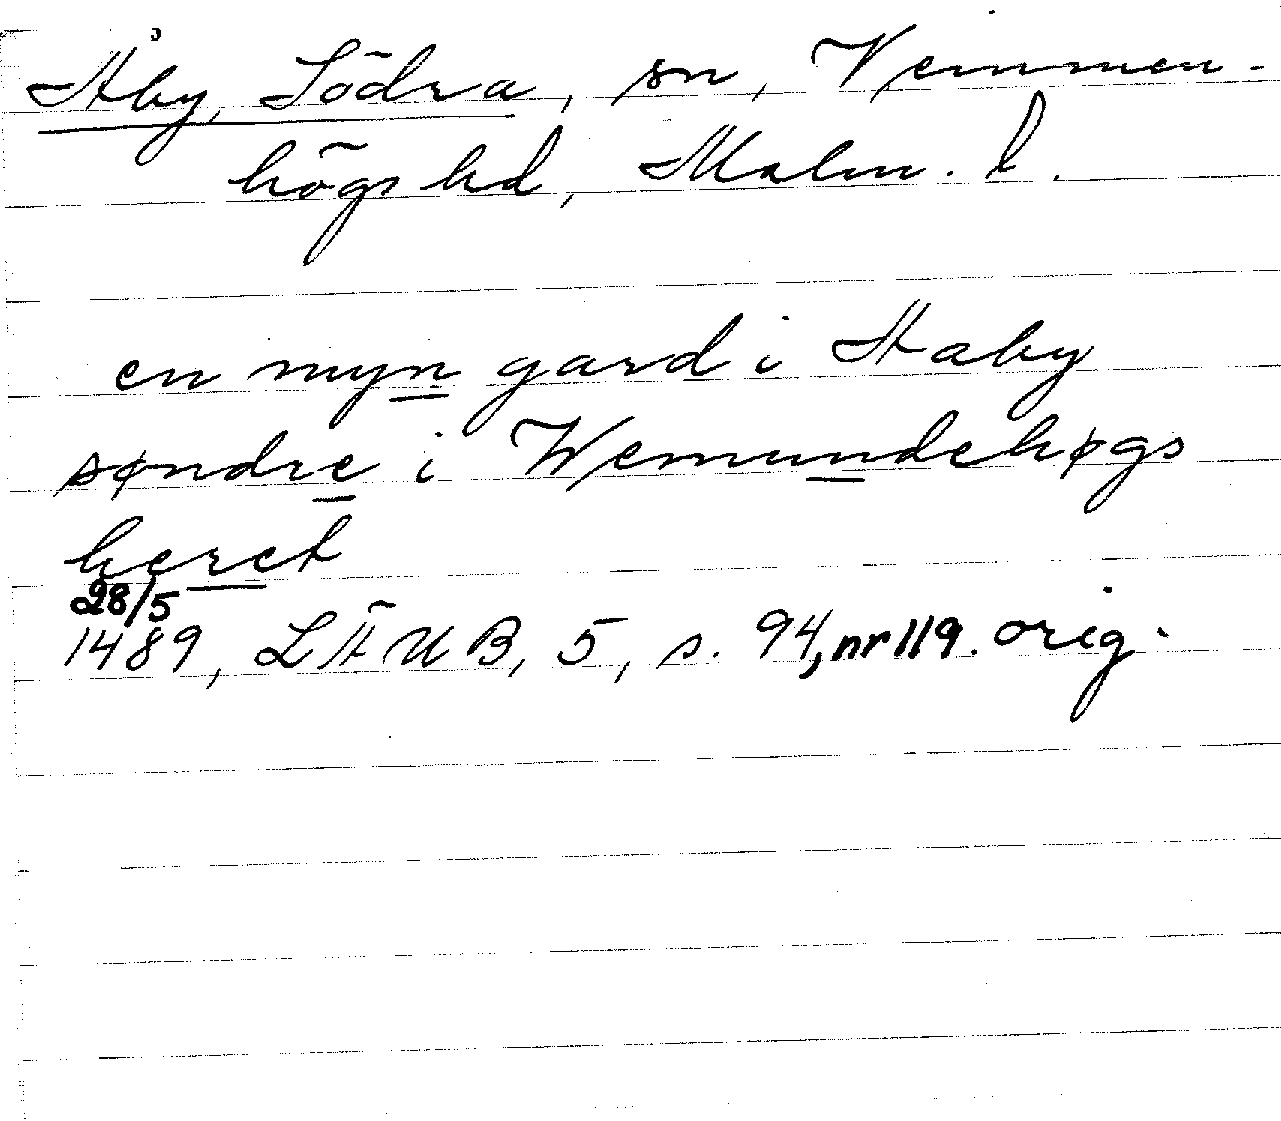 Åby, Södra, sn, Vemmen-
högs hd, Malm. l.
en myn gard i Aaby
søndre i Wemundehøgs
heret
28/5
1489, LÄUB, 5, s. 94, nr 119. orig.